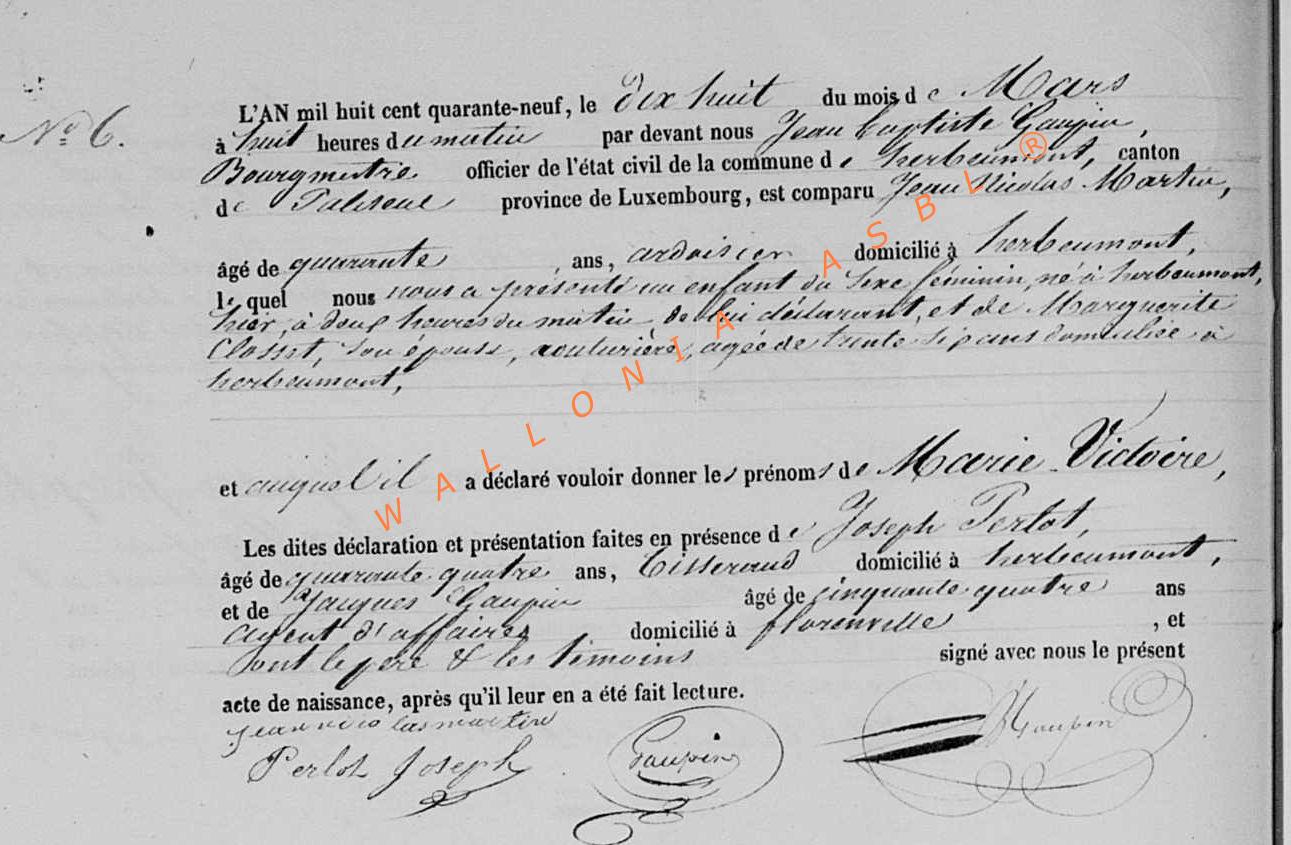 N° 6.
L'AN mil huit cent quarante-neuf, le dix huit du mois de Mars
à huit heures du matin par devant nous Jean Baptiste Gaupin,
Bourgmestre officier de l'état civil de la commune de herbeumont, canton
de Paliseul province de Luxembourg, est comparu Jean Nicolas Martin,
âgé de quarante ans, ardoisier domicilié à herbeumont,
lequel nous nous a présenté un enfant du sexe féminin, né à herbeumont,
hier, à deux heures du matin, de lui déclarant, et de Marguerite
Closset, son épouse, couturière, agée de trente six ans domiciliée à
herbeumont,
et auquel il a déclaré vouloir donner les prénoms de Marie Victoire,
Les dites déclaration et présentation faites en présence de Joseph Perlot,
âgé de quarante quatre ans, Tisserand domicilié à herbeumont,
et de Jacques Gaupin âgé de cinquante quatre ans
agent d'affaires domicilié à florenville, et
sont le père & les témoins signé avec nous le présent
acte de naissance, après qu'il leur en a été fait lecture.
jean nico las martin
Perlot Joseph Gaupin Gaupin
WALLONIA ASBL ®